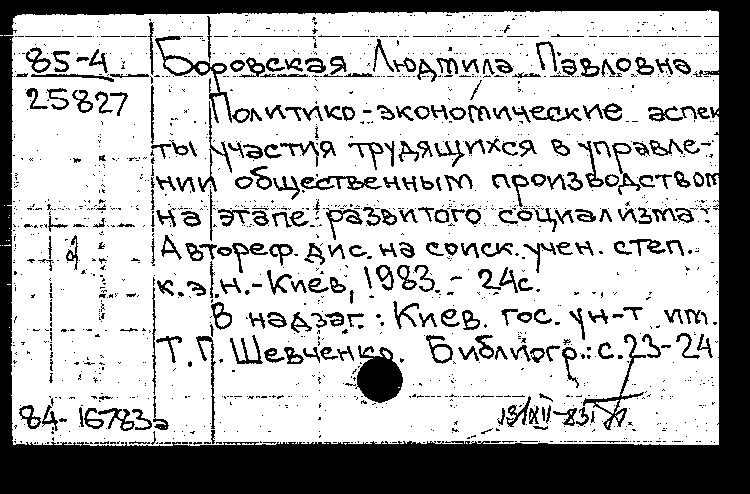 85-4 Боровская Людмила Павловна
25827 Политико-экономические аспек
ты участия трудящихся в управле-
нии общественным производством
на этапе развитого социализма:
Автореф. дис. на соиск. учен. степ.
к.э.н.-Киев, 1983. - 24с.
В надзаг.: Киев. гос. ун-т им.
Т.Г. Шевченко. Библиогр.: с.23-24
84-16783а